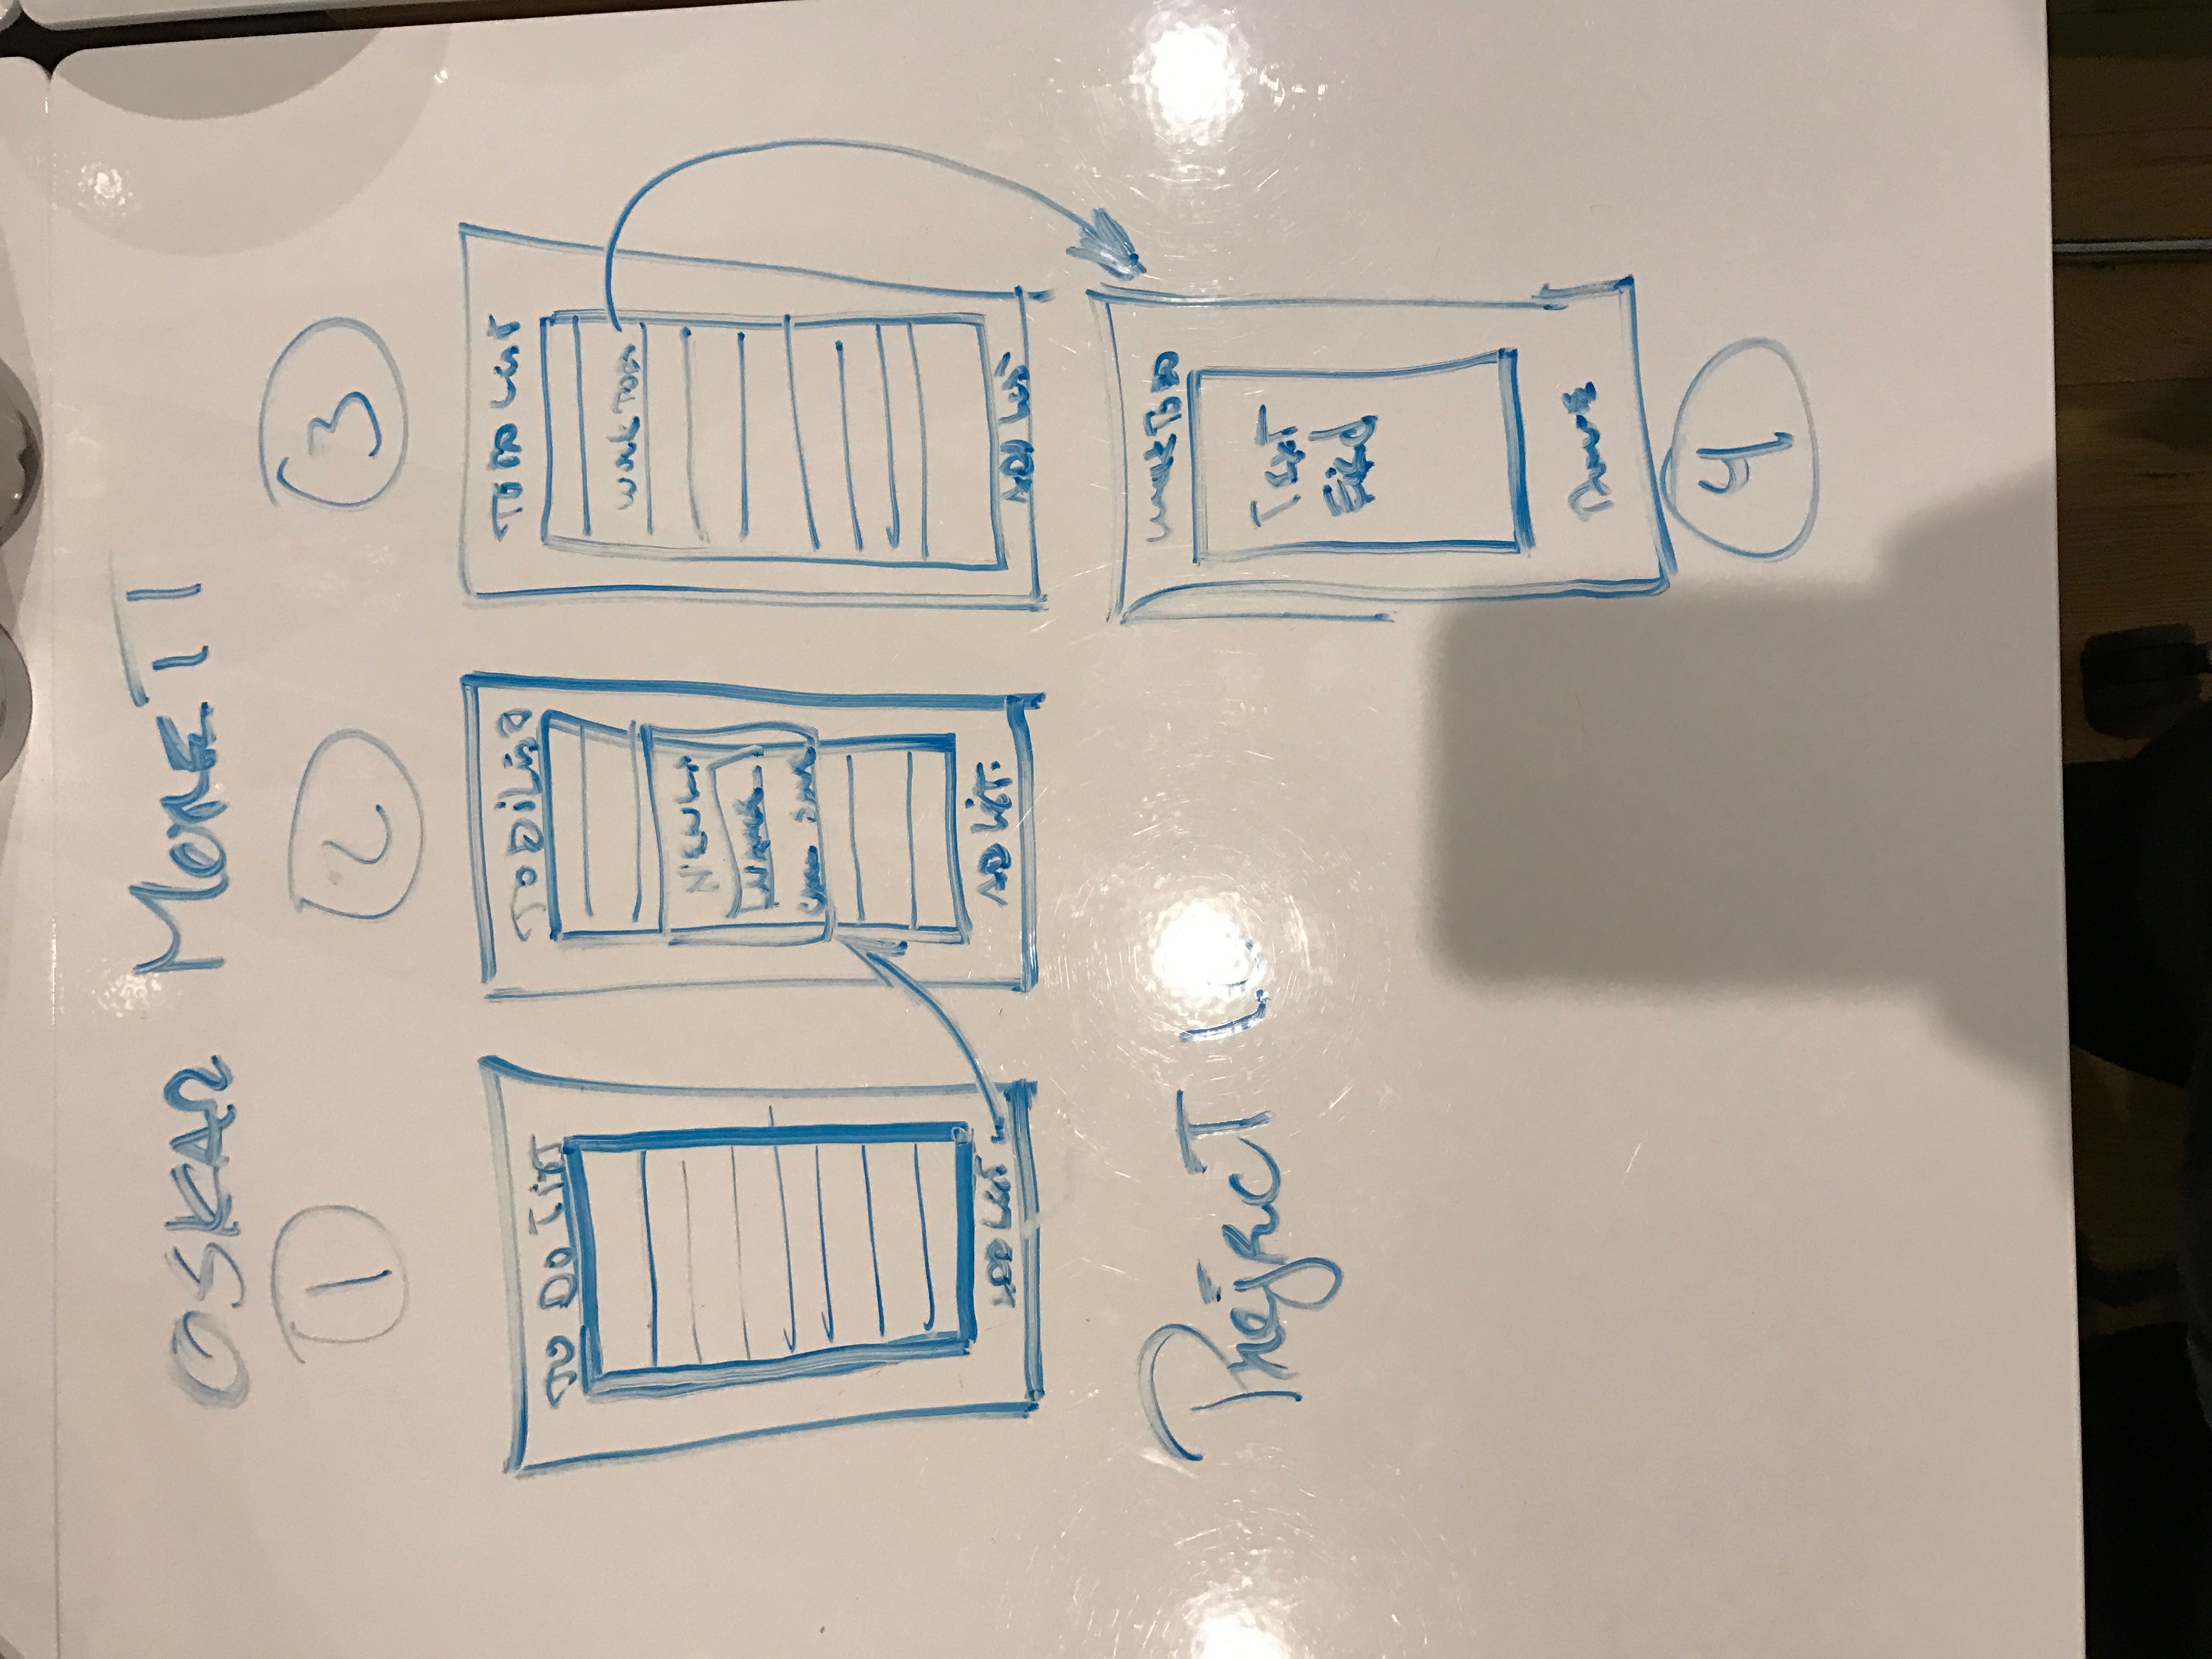 OSKAR MORETTI
1
2
3
TO DO LIST
ADD LIST
TO DO LIST
NEW LI
NAME
SAVE
ADD LIST.
TO DO LIST
WORK TODO
ADD LIST
PROJECT
WORK TO DO
TEXT
DONE
4